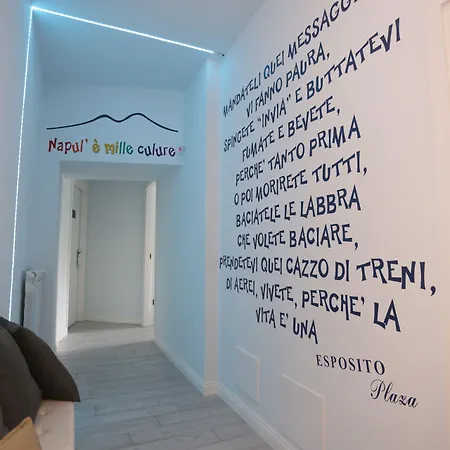 Napul' è mille culure
MANDATELI QUEI MESSAGGI
VI FANNO PAURA,
SPINGETE "INVIA" E BUTTATEVI
FUMATE E BEVETE,
PERCHE' TANTO PRIMA
O POI MORIRETE TUTTI,
BACIATELE LE LABBRA
CHE VOLETE BACIARE,
PRENDETEVI QUEI CAZZO DI TRENI,
DI AEREI, VIVETE, PERCHE' LA
VITA E' UNA
ESPOSITO
Plaza